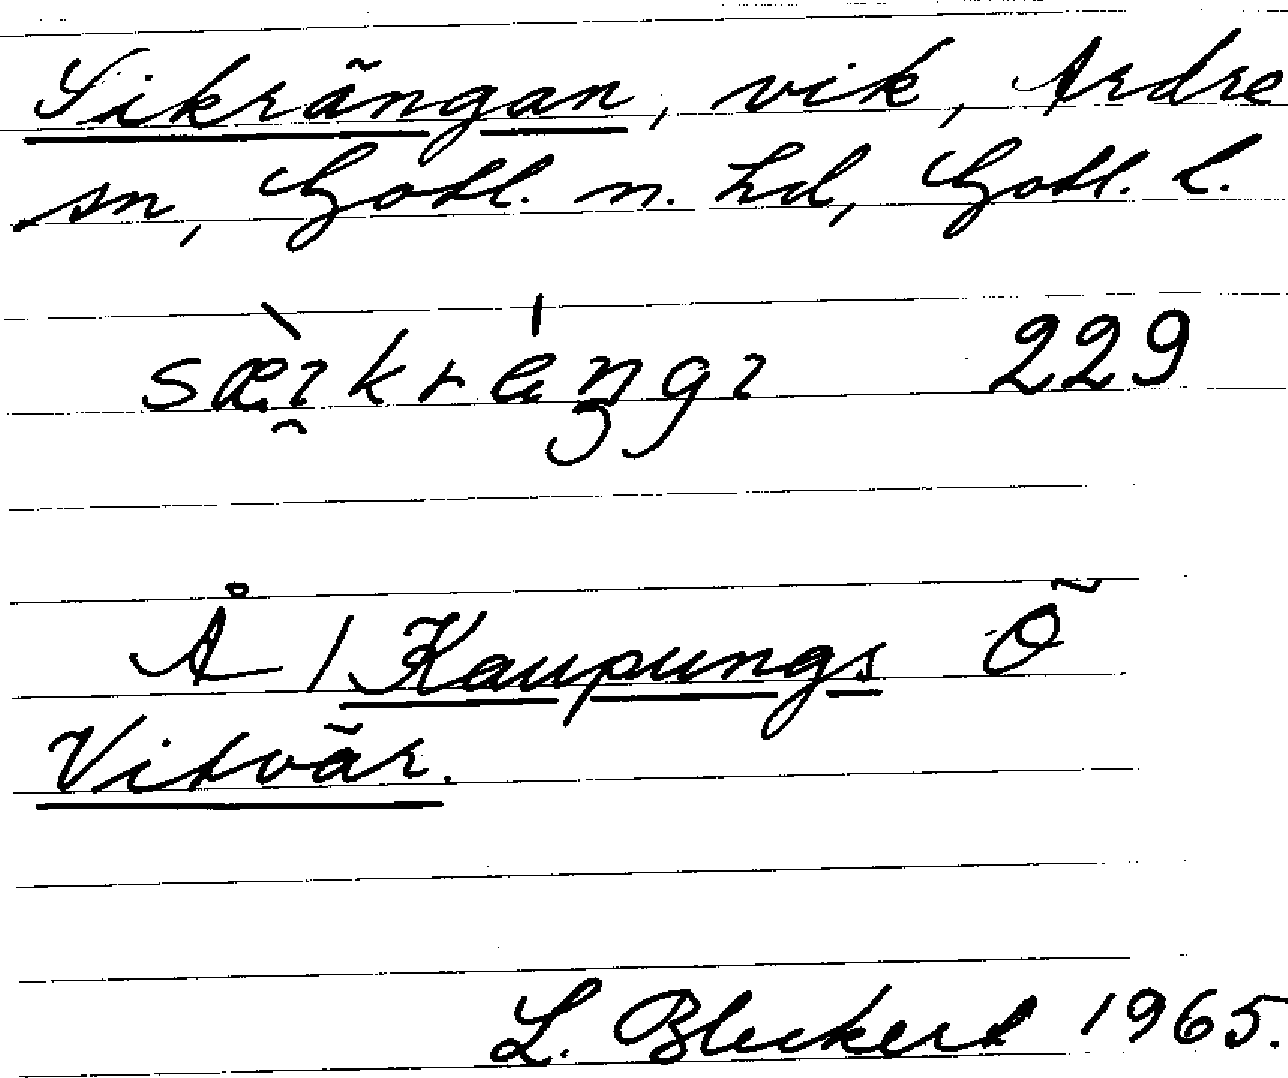 Sikrängan, vik, Ardre
sn, Gotl. n. hd, Gotl. l.
sæ̀ı̯kréŋgı 229
Å / Kaupungs Ö
Vitvär.
L. Bleckert 1965.